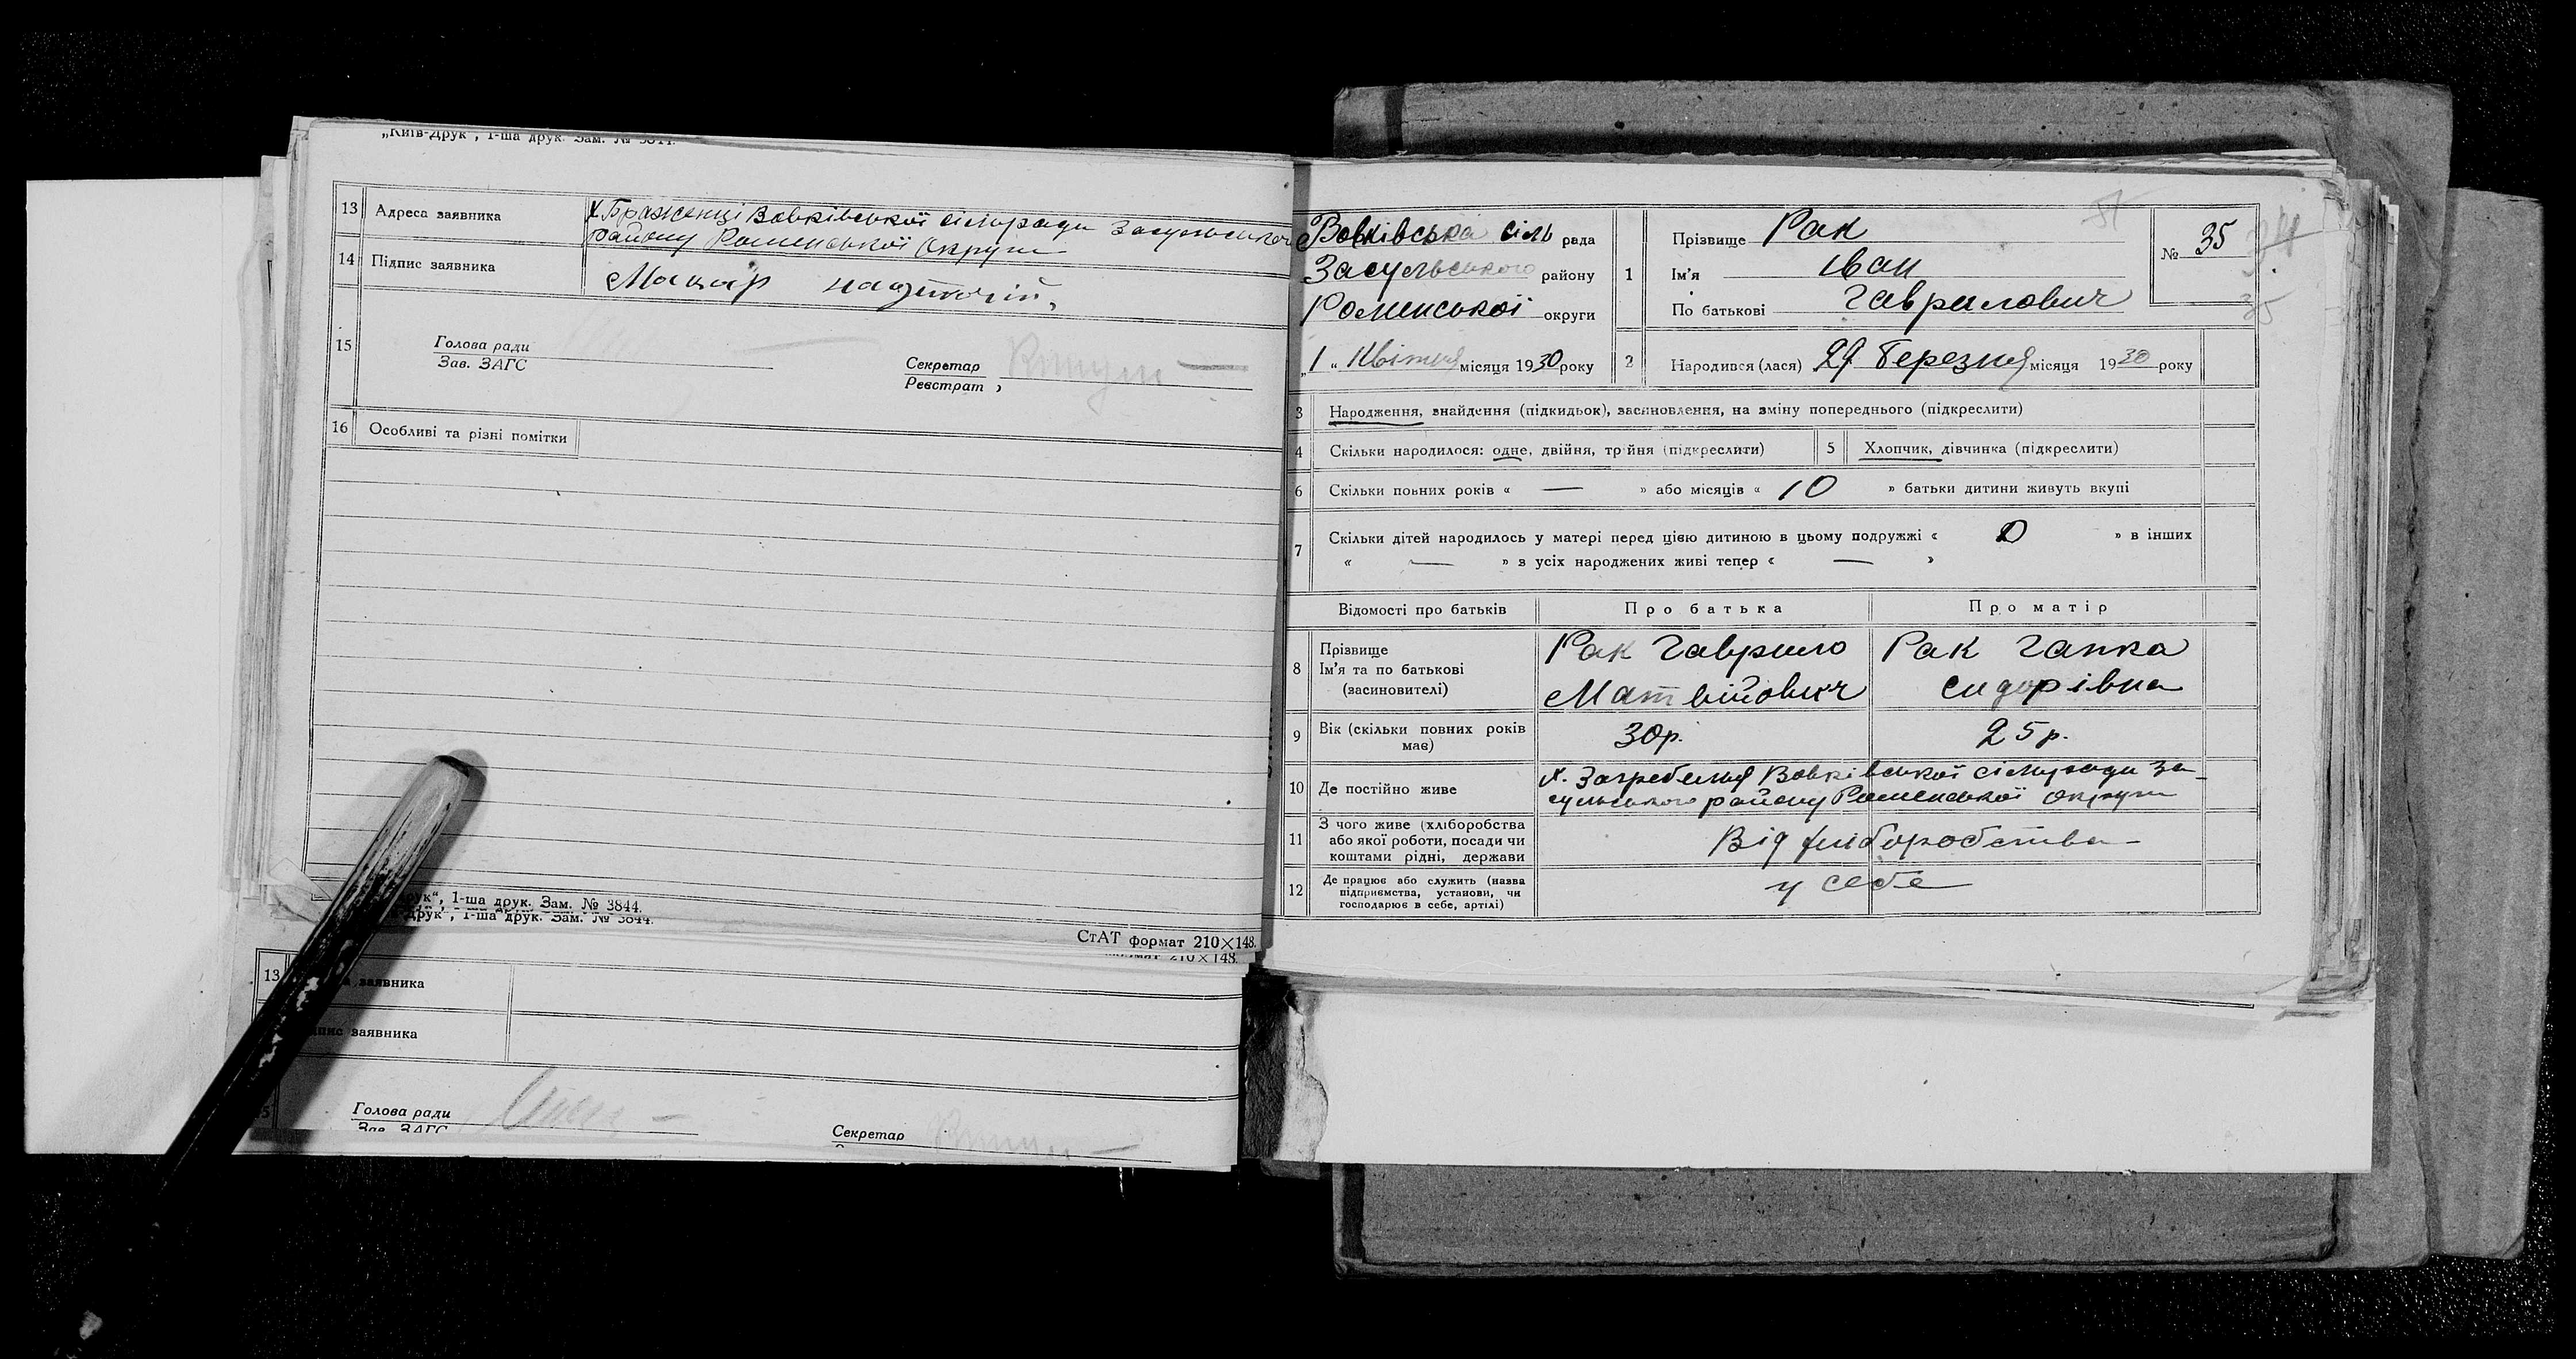 „Київ-Друк", 1-ша друк. Зам. № 3844.
13 Адреса заявника х. Браженці Вовківської сільради Засульського
району Роменської Округи
14 Підпис заявника Макар
15 Голова ради
Зав. ЗАГС
Секретар
Реєстрат
16 Особливі та різні помітки
друк", 1-ша друк. Зам. № 3844.
-друк", 1-ша друк. Зам. № 3844.
СтАТ формат 210×148.
формат 210×148.
13 заявника
заявника
Голова ради
Зав. ЗАГС
Секретар
Вовківська сіль рада
Засульського району
Роменської округи
„1" Квітня місяця 1930 року
1 Прізвище Рак
Ім'я Іван
По батькові Гаврилович
№ 35
34
35
2 Народився (лася) 29 Березня місяця 1930 року
3 Народження, знайдення (підкидьок), засиновлення, на зміну попереднього (підкреслити)
4 Скільки народилося: одне, двійня, трійня (підкреслити) 5 Хлопчик, дівчинка (підкреслити)
6 Скільки повних років « — » або місяців « 10 » батьки дитини живуть вкупі
7 Скільки дітей народилось у матері перед цією дитиною в цьому подружжі « 0 » в інших
« — » з усіх народжених живі тепер « — »
Відомості про батьків Про батька Про матір
8 Прізвище
Ім'я та по батькові
(засиновителі)
Рак Гаврило
Матвійович
Рак Гапка
Сидорівна
9 Вік (скільки повних років
має)
30р. 25р.
10 Де постійно живе х. Загребелля Вовківської сільради За-
сульського району Роменської Округи
11 З чого живе (хліборобства
або якої роботи, посади чи
коштами рідні, держави
Від хліборобства
12 Де працює або служить (назва
підприємства, установи, чи
господарює в себе, артілі)
у себе